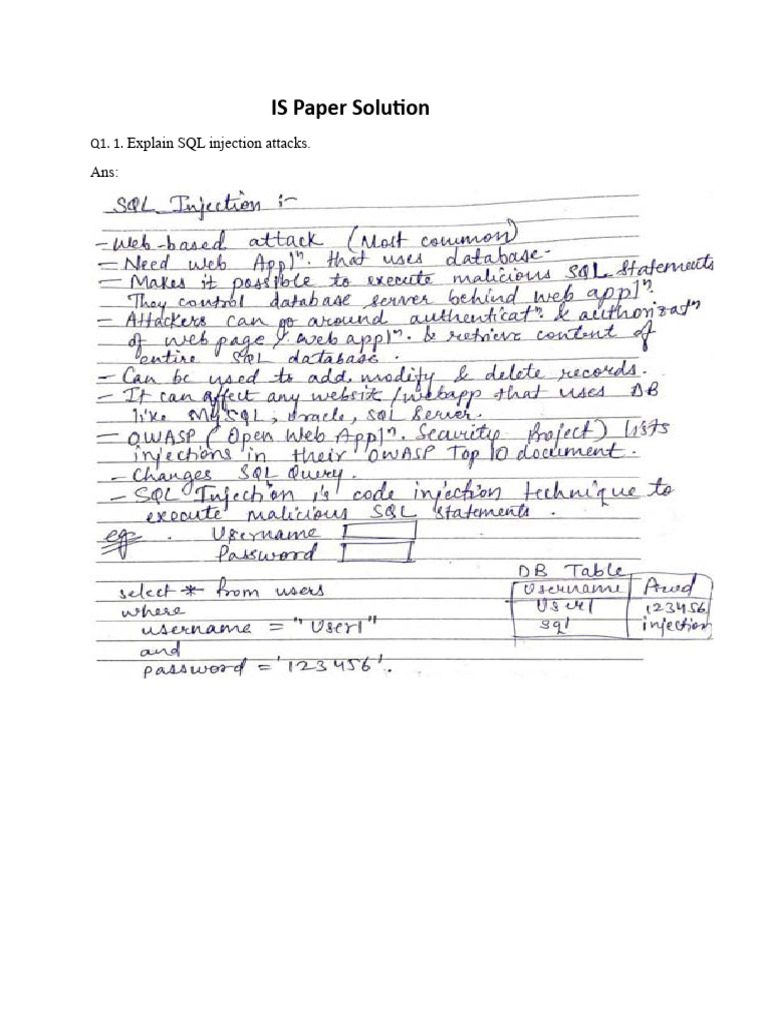 IS Paper Solution
Q1. 1. Explain SQL injection attacks.
Ans:
SQL Injection :-
- Web-based attack (Most common)
- Need Web Appln. that uses database.
- Makes it possible to execute malicious SQL Statements
They control database server behind web appln.
- Attackers can go around authenticatn & authorizatn
of web page / web appln. & retrieve content of
entire SQL database.
- Can be used to add, modify & delete records.
- It can affect any website /webapp that uses DB
like MySQL, Oracle, SQL Server.
- OWASP (Open Web Appln. Security Project) lists
injections in their OWASP Top 10 document.
- Changes SQL Query.
- SQL Injection is code injection technique to
execute malicious SQL statements.
eg. Username
Password
DB Table
Username
User1 123456
sql injection
select * from users
where
username = "User1"
and
password = '123456'.